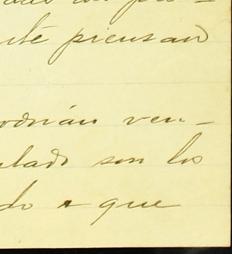 piensan
podrían ven-
lado son los
do a que